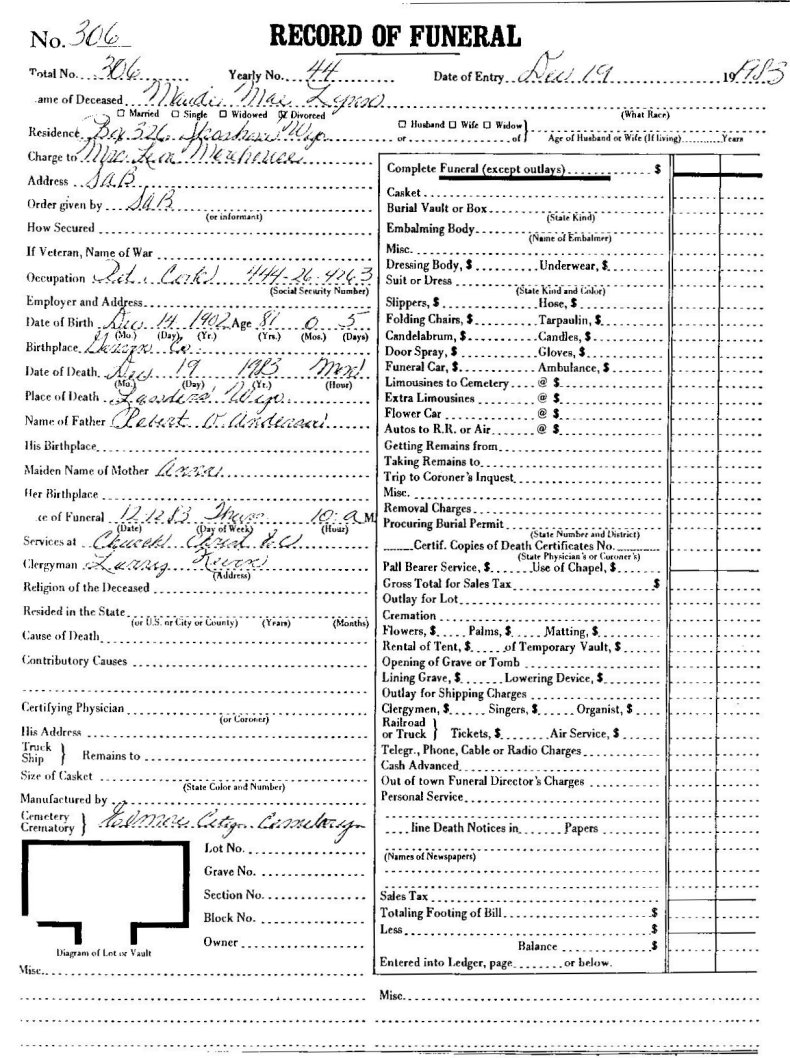 No. 306 RECORD OF FUNERAL
Total No. 306 Yearly No. 44 Date of Entry Dec 19 1983
ame of Deceased Maudie Mae
(What Race)
☐ Married ☐ Single ☐ Widowed ☑ Divorced
☐ Husband ☐ Wife ☐ Widow } or of Age of Husband or Wife (If living) Years
Residence Box 326 Wyo
Charge to Mrs.
Address SAB
Order given by SAB
(or informant)
How Secured
If Veteran, Name of War
Occupation 444-26-4263
(Social Security Number)
Employer and Address
Date of Birth Dec 14 1902 Age 81 0 5
(Mo.) (Day) (Yr.) (Yrs.) (Mos.) (Days)
Birthplace Co
Date of Death Dec 19 1983 Mon
(Mo.) (Day) (Yr.) (Hour)
Place of Death Lander Wyo.
Name of Father Robert Anderson
His Birthplace
Maiden Name of Mother Anna
Her Birthplace
ce of Funeral 12-12 83 Thurs 10-a M
(Date) (Day of Week) (Hour)
Services at Church Christ
Clergyman Larry
(Address)
Religion of the Deceased
Resided in the State
(or U.S. or City or County) (Years) (Months)
Cause of Death
Contributory Causes
Certifying Physician
(or Coroner)
His Address
Truck Ship } Remains to
Size of Casket
(State Color and Number)
Manufactured by
Cemetery Crematory } Elmore City Cemetary
Lot No.
Grave No.
Section No.
Block No.
Owner
Diagram of Lot or Vault
Misc.
Complete Funeral (except outlays) $
Casket
Burial Vault or Box
(State Kind)
Embalming Body
(Name of Embalmer)
Misc.
Dressing Body, $ Underwear, $
Suit or Dress
(State Kind and Color)
Slippers, $ Hose, $
Folding Chairs, $ Tarpaulin, $
Candelabrum, $ Candles, $
Door Spray, $ Gloves, $
Funeral Car, $ Ambulance, $
Limousines to Cemetery @ $
Extra Limousines @ $
Flower Car @ $
Autos to R.R. or Air @ $
Getting Remains from
Taking Remains to
Trip to Coroner's Inquest
Misc.
Removal Charges
Procuring Burial Permit
(State Number and District)
Certif. Copies of Death Certificates No.
(State Physician's or Coroner's)
Pall Bearer Service, $ Use of Chapel, $
Gross Total for Sales Tax $
Outlay for Lot
Cremation
Flowers, $ Palms, $ Matting, $
Rental of Tent, $ of Temporary Vault, $
Opening of Grave or Tomb
Lining Grave, $ Lowering Device, $
Outlay for Shipping Charges
Clergymen, $ Singers, $ Organist, $
Railroad or Truck } Tickets, $ Air Service, $
Telegr., Phone, Cable or Radio Charges
Cash Advanced
Out of town Funeral Director's Charges
Personal Service
line Death Notices in Papers
(Names of Newspapers)
Sales Tax
Totaling Footing of Bill $
Less $
Balance $
Entered into Ledger, page or below.
Misc.